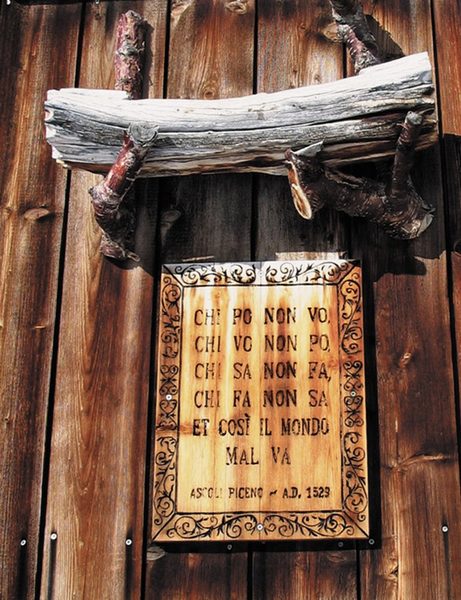 CHI PO NON VO,
CHI VO NON PO,
CHI SA NON FA,
CHI FA NON SA
ET COSÌ IL MONDO
MAL VA
ASCOLI PICENO ~ A.D. 1529